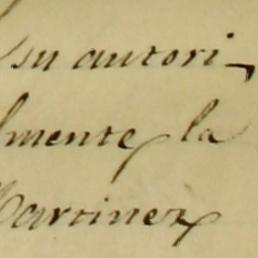 su autori
lmente la
Martinez